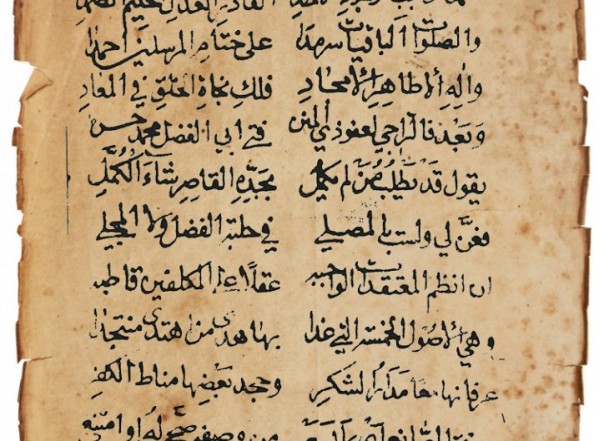 القادر العدل
والصلوات الباقيات سرمدا على ختام المرسلين احمدا
واله الاطاهر الامجاد فلك نجاة الخلق في المعاد
وبعد فالراجي لعفو ذي المنن فتى ابي الفضل محمد حسن
يقول قد يطلب من لم يكمل بجدّه القاصر شأو الكمّل
فعنّ لي ولست بالمصلي في حلبة الفضل ولا المجلي
ان انظم المعتقدات الواجبه عقلا على المكلفين قاطبه
وهي الاصول الخمسة التي غدا بها هدى من اهتدى منتجدا
عرفانها معا مدار الشكر وجحد بعضها مناط الكفر